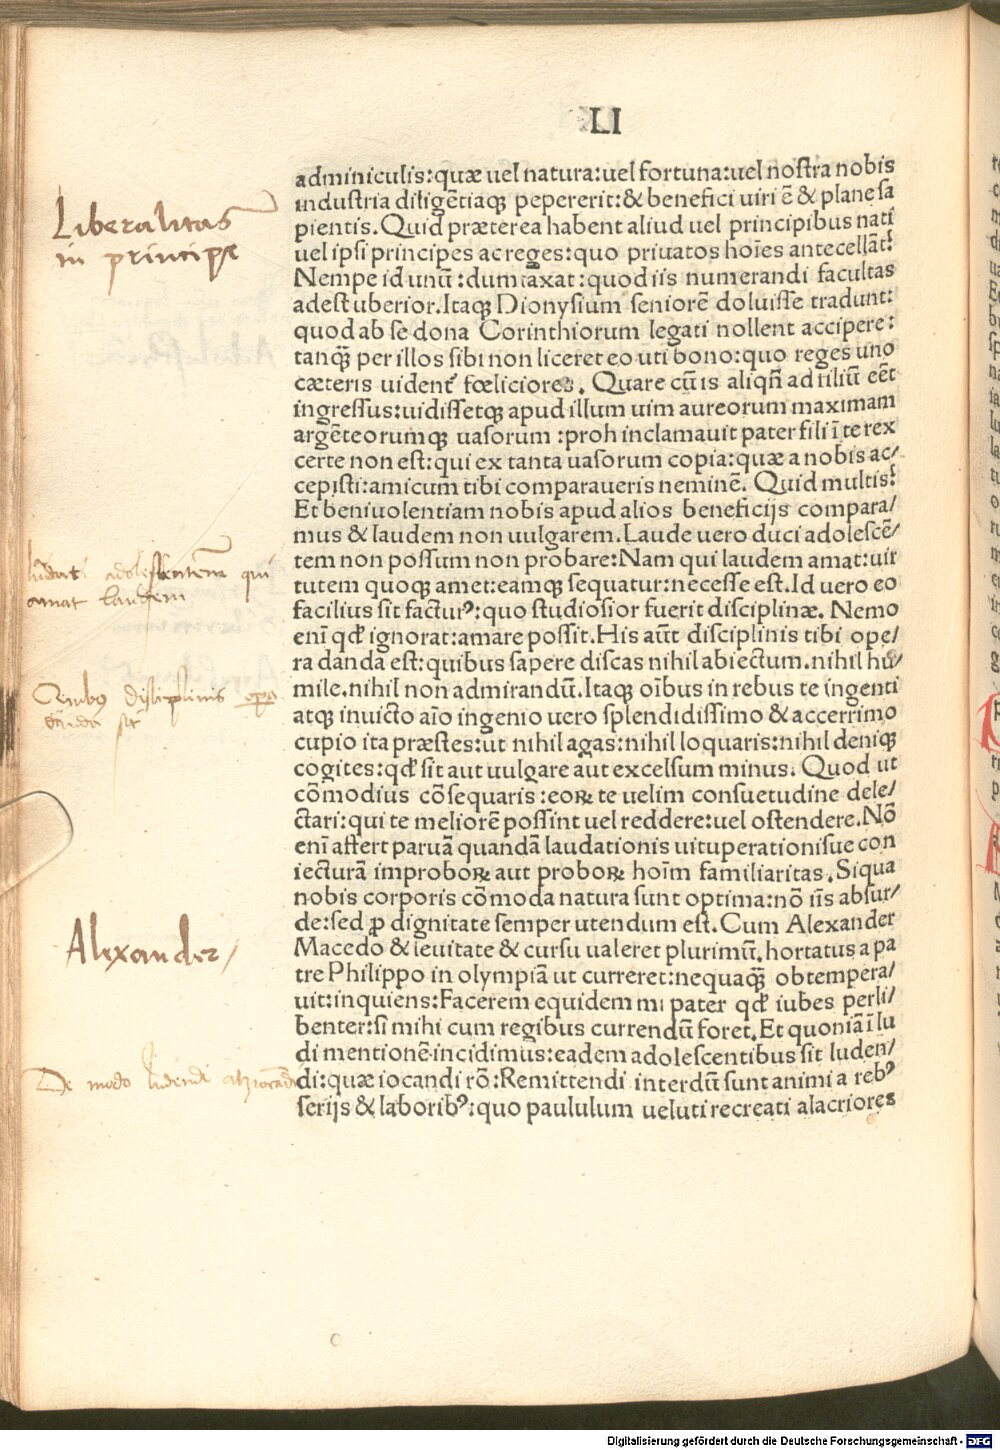 LI
adminiculis:quæ uel natura:uel fortuna:uel nostra nobis
industria diligẽtiaqꝫ pepererit:& benefici uiri ẽ & plane sa
pientis. Quid præterea habent aliud uel principibus nati
uel ipsi principes ac reges:quo priuatos hoīes antecellãt?
Nempe id unũ:dumtaxat:quod iis numerandi facultas
adest uberior. Itaqꝫ Dionysium seniorẽ doluisse tradunt:
quod ab se dona Corinthiorum legati nollent accipere:
tanqꝫ̃ per illos sibi non liceret eo uti bono:quo reges uno
cæteris uident᷑ fœliciores. Quare cũ is aliqñ ad filiũ eẽt
ingressus:uidissetqꝫ apud illum uim aureorum maximam
argẽteorumqꝫ uasorum:proh inclamauit pater fili ī te rex
certe non est:qui ex tanta uasorum copia:quæ a nobis ac/
cepisti:amicum tibi comparaueris neminẽ. Quid multis?
Et beniuolentiam nobis apud alios beneficijs compara/
mus & laudem non uulgarem. Laude uero duci adolescẽ/
tem non possum non probare:Nam qui laudem amat:uir
tutem quoqꝫ amet:eamqꝫ sequatur:necesse est. Id uero eo
facilius sit facturꝰ:quo studiosior fuerit disciplinæ. Nemo
enī qđ ignorat:amare possit. His aũt disciplinis tibi ope/
ra danda est:quibus sapere discas nihil abiectum.nihil hu/
mile.nihil non admirandũ. Itaqꝫ oībus in rebus te ingenti
atqꝫ inuicto aīo ingenio uero splendidissimo & accerrimo
cupio ita præstes:ut nihil agas:nihil loquaris:nihil deniqꝫ
cogites:qđ sit aut uulgare aut excelsum minus. Quod ut
cõmodius cõsequaris:eoꝝ te uelim consuetudine dele/
ctari:qui te meliorẽ possint uel reddere:uel ostendere. Nõ
enī affert paruã quandã laudationis uituperationisue con
iecturã improboꝝ aut proboꝝ hoīm familiaritas. Siqua
nobis corporis cõmoda natura sunt optima:nõ iis absur/
de:sed ꝓ dignitate semper utendum est. Cum Alexander
Macedo & leuitate & cursu ualeret plurimũ.hortatus a pa
tre Philippo in olympiã ut curreret:nequaqꝫ̃ obtempera/
uit:inquiens:Facerem equidem mi pater qđ iubes perli/
benter:si mihi cum regibus currendũ foret. Et quoniã ī lu
di mentionẽ incidimus:eadem adolescentibus sit luden/
di:quæ iocandi rõ:Remittendi interdũ sunt animi a rebꝰ
serijs & laboribꝰ:quo paululum ueluti recreati alacriores
Liberalitas
in principe
laudati adolescentem qui
amat laudem
Quibꝰ disciplinis opera
danda sit
Alexander/
De modo ludendi
Digitalisierung gefördert durch die Deutsche Forschungsgemeinschaft - DFG